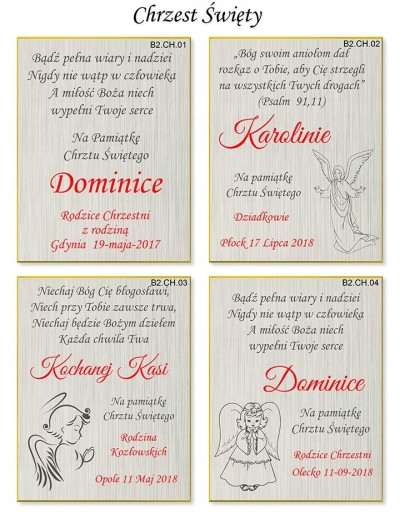 Chrzest Święty
B2.CH.01
Bądź pełna wiary i nadziei
Nigdy nie wątp w człowieka
A miłość Boża niech
wypełni Twoje serce
Na Pamiątkę
Chrztu Świętego
Dominice
Rodzice Chrzestni
z rodziną
Gdynia 19-maja-2017
B2.CH.02
„Bóg swoim aniołom dał
rozkaz o Tobie, aby Cię strzegli
na wszystkich Twych drogach”
(Psalm 91,11)
Karolinie
Na pamiątkę
Chrztu Świętego
Dziadkowie
Płock 17 Lipca 2018
B2.CH.03
Niechaj Bóg Cię błogosławi,
Niech przy Tobie zawsze trwa,
Niechaj będzie Bożym dziełem
Każda chwila Twa
Kochanej Kasi
Na pamiątkę
Chrztu Świętego
Rodzina
Kozłowskich
Opole 11 Maj 2018
B2.CH.04
Bądź pełna wiary i nadziei
Nigdy nie wątp w człowieka
A miłość Boża niech
wypełni Twoje serce
Dominice
Na pamiątkę
Chrztu Świętego
Rodzice Chrzestni
Olecko 11-09-2018